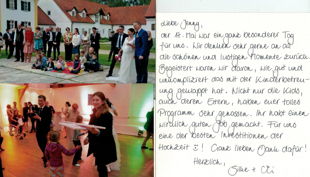 Liebe Jenny,
der 14. Mai war ein ganz besonderer Tag
für uns. Wir denken sehr gerne an all
die schönen und lustigen Momente zurück.
Begeistert waren wir davon, wie gut und
unkompliziert das mit der Kinderbetreu-
ung geklappt hat. Nicht nur die Kids,
auch deren Eltern, haben euer tolles
Programm sehr genossen. Ihr habt einen
wirklich guten Job gemacht. Für uns
eine der besten Investitionen der
Hochzeit! Ganz lieben Dank dafür!
Herzlich,